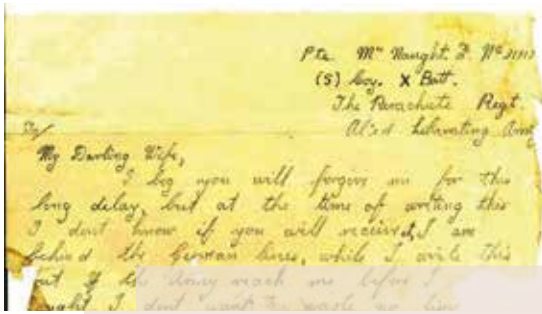 Pte. Mc Naught. F. No
(S) Coy. X Batt.
The Parachute Regt.
Al'ed Liberating Army
My Darling Wife,
I beg you will forgive me for this
long delay, but at the time of writing this
I dont know if you will received, I am
behind the German lines, while I write this
but if the Army reach me before I
I dont want to waste no time